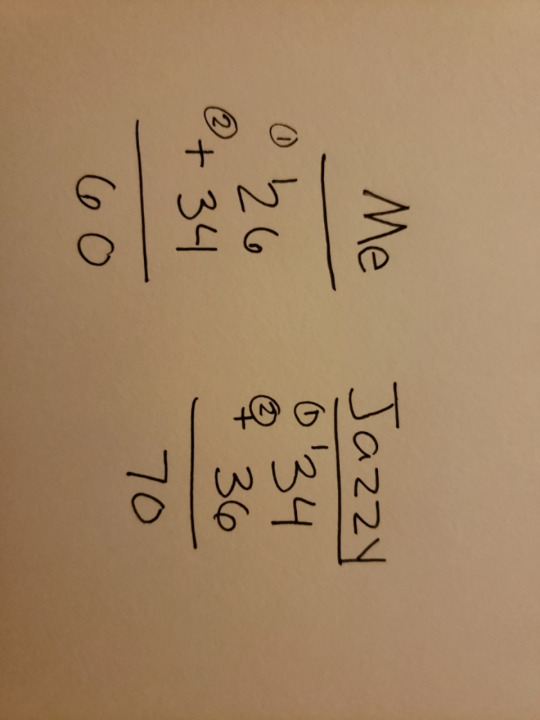 Me
① ¹26
② + 34
60
Jazzy
① ¹34
② + 36
70